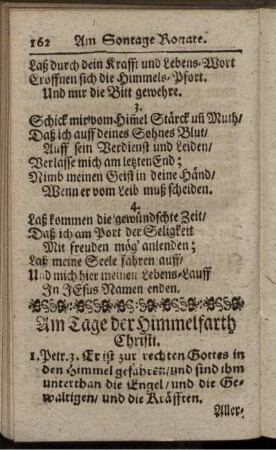 162 Am Sontage Rogate.
Laß durch dein Krafft und Lebens-Wort
Eröffnen sich die Himmels-Pfort.
Und mir die Bitt gewehre.
3.
Schick mir vom Him̃el Stärck uñ Muth/
Daß ich auff deines Sohnes Blut/
Auff sein Verdienst und Leiden/
Verlasse mich am letzten End;
Nimb meinen Geist in deine Händ/
Wenn er vom Leib muß scheiden.
4.
Laß kommen die gewündschte Zeit/
Daß ich am Port der Seligkeit
Mit freuden mög anlenden;
Laß meine Seele fahren auff/
Und mich hier meinen Lebens-Lauff
In JEsus Namen enden.
Am Tage der Himmelfarth
Christi.
1. Petr. 3. Er ist zur rechten Gottes in
den Himmel gefahren/und sind ihm
unterthan die Engel/und die Ge-
waltigen/ und die Kräfften.
Aller-